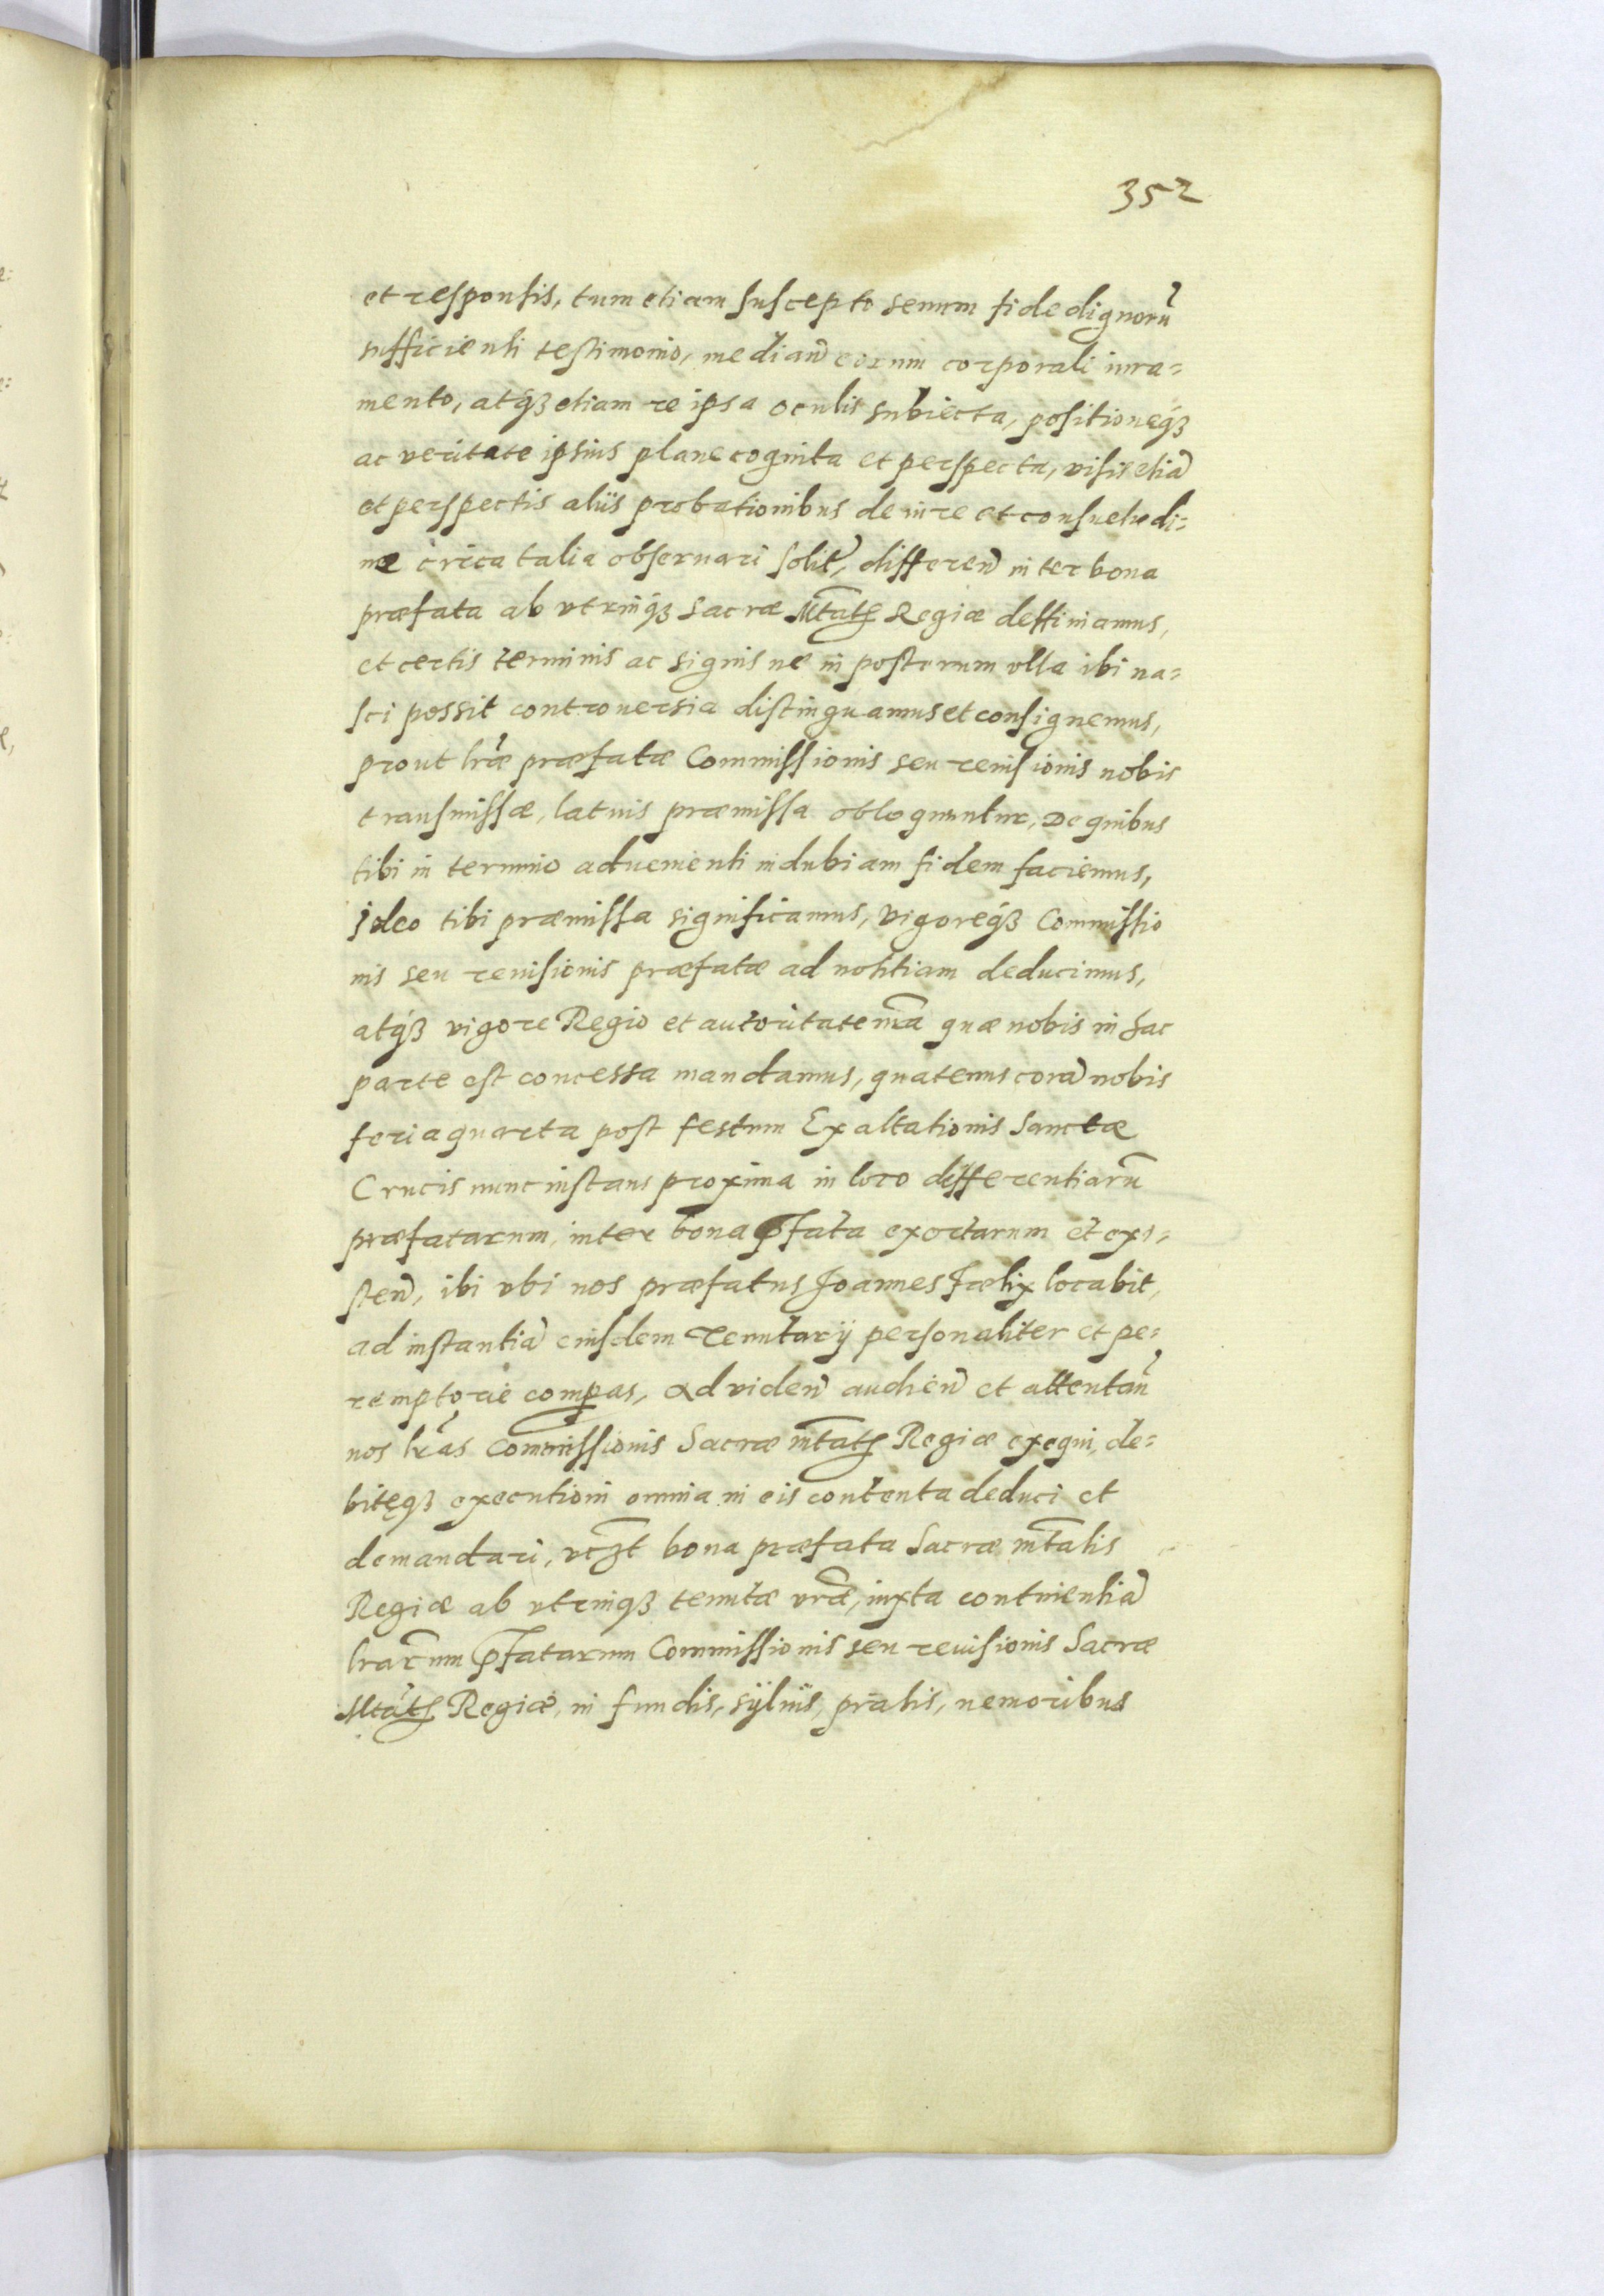 352
et responsis, tum etiam suscepto senum fide dignorū
sufficienti testimonio, median̄ eorum corporali iura=
mento, atq́ꝫ etiam re ipsa oculis subiecta, positioneq́ꝫ
ac veritate ipsius plane cognita et perspecta, visis etiā
et perspectis aliis probationibus de iure et consuetudi=
ne circa talia obseruari solit̄, differen̄ inter bona
præfata ab vtrinq́ꝫ Sacræ Mtatis Regiæ deffiniamus,
et certis terminis ac signis ne in posterum vlla ibi na=
sci possit controuersia distinguamus et consignemus,
prout lræ præfatæ Commissionis seu reuisionis nobis
transmissæ, latius præmissa obloquuntur, De quibus
tibi in termino aduenienti indubiam fidem faciemus,
Ideo tibi præmissa significamus, vigoreq́ꝫ Commissio
nis seu reuisionis præfatæ ad notitiam deducimus,
atq́ꝫ vigore Regio et autoritate nr̄a quæ nobis in hac
parte est concessa mandamus, quatenus corā nobis
feria quarta post festum Exaltationis Sanctæ
Crucis nunc instans proxima in loco differentiarū
præfatarum, inter bona p̄fata exortarum et exi=
sten̄, ibi vbi nos præfatus Joannes Fælix locabit,
ad instantiā eiusdem Tenutarij personaliter et pe=
remptorie compas, Ad viden̄ audien̄ et attentan̄
nos lr̄as Commissionis Sacræ mtatis Regiæ exequi, de=
bitęqꝫ executioni omnia in eis contenta deduci et
demandari, vcꝫt bona præfata Sacræ mtatis
Regiæ ab vtrinqꝫ tenutæ vræ, iuxta continentiā
lrarum p̄fatarum Commissionis seu reuisionis Sacræ
Mtatis Regiæ, in fundis, syluis, pratis, nemoribus